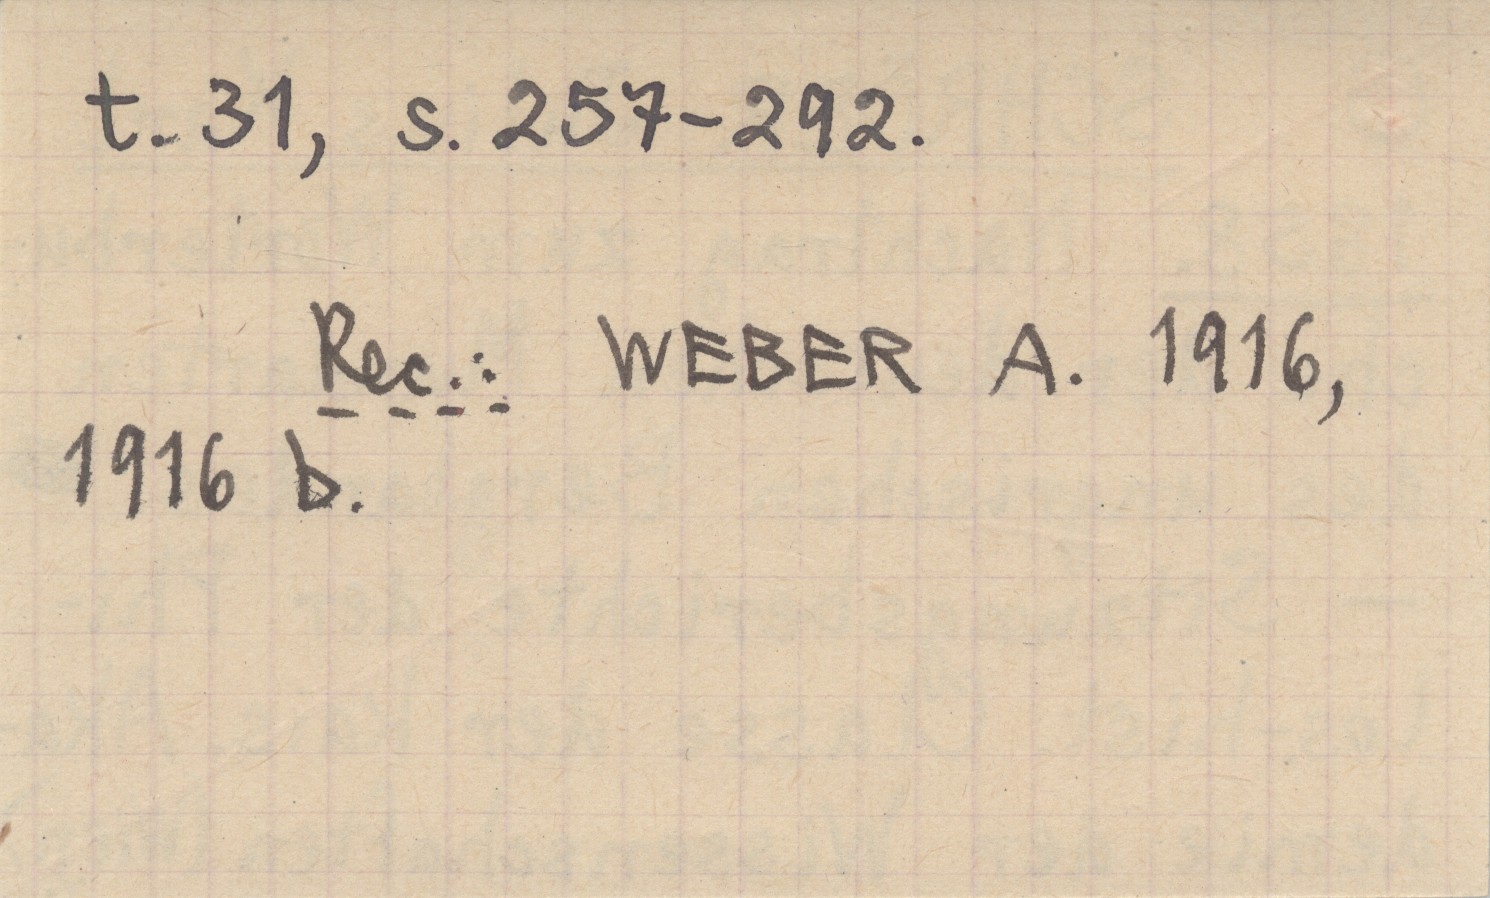 t. 31, s. 257-292.
Rec.: WEBER A. 1916,
1916 b.